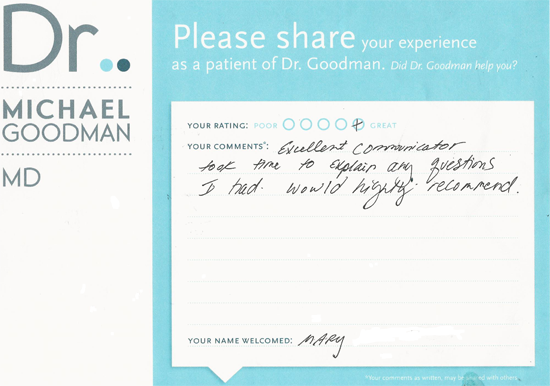 Dr..
MICHAEL
GOODMAN
MD
Please share your experience
as a patient of Dr. Goodman. Did Dr. Goodman help you?
YOUR RATING: POOR GREAT
YOUR COMMENTS*: Excellent communicator
took time to explain any questions
I had. Would highly recommend.
YOUR NAME WELCOMED: MARY
*Your comments as written, may be shared with others.